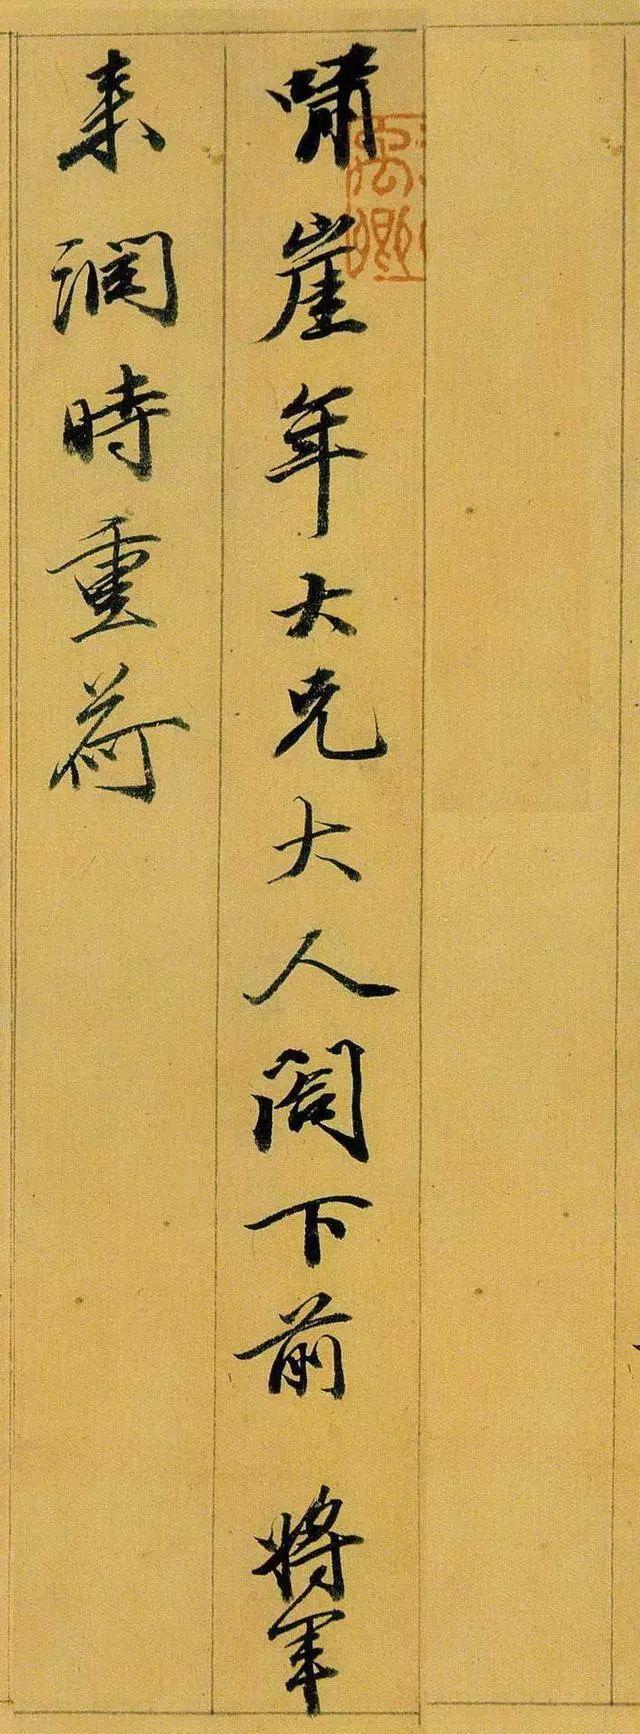 嘯崖年大兄大人閣下前 將軍
來潤時重荷
禹卿